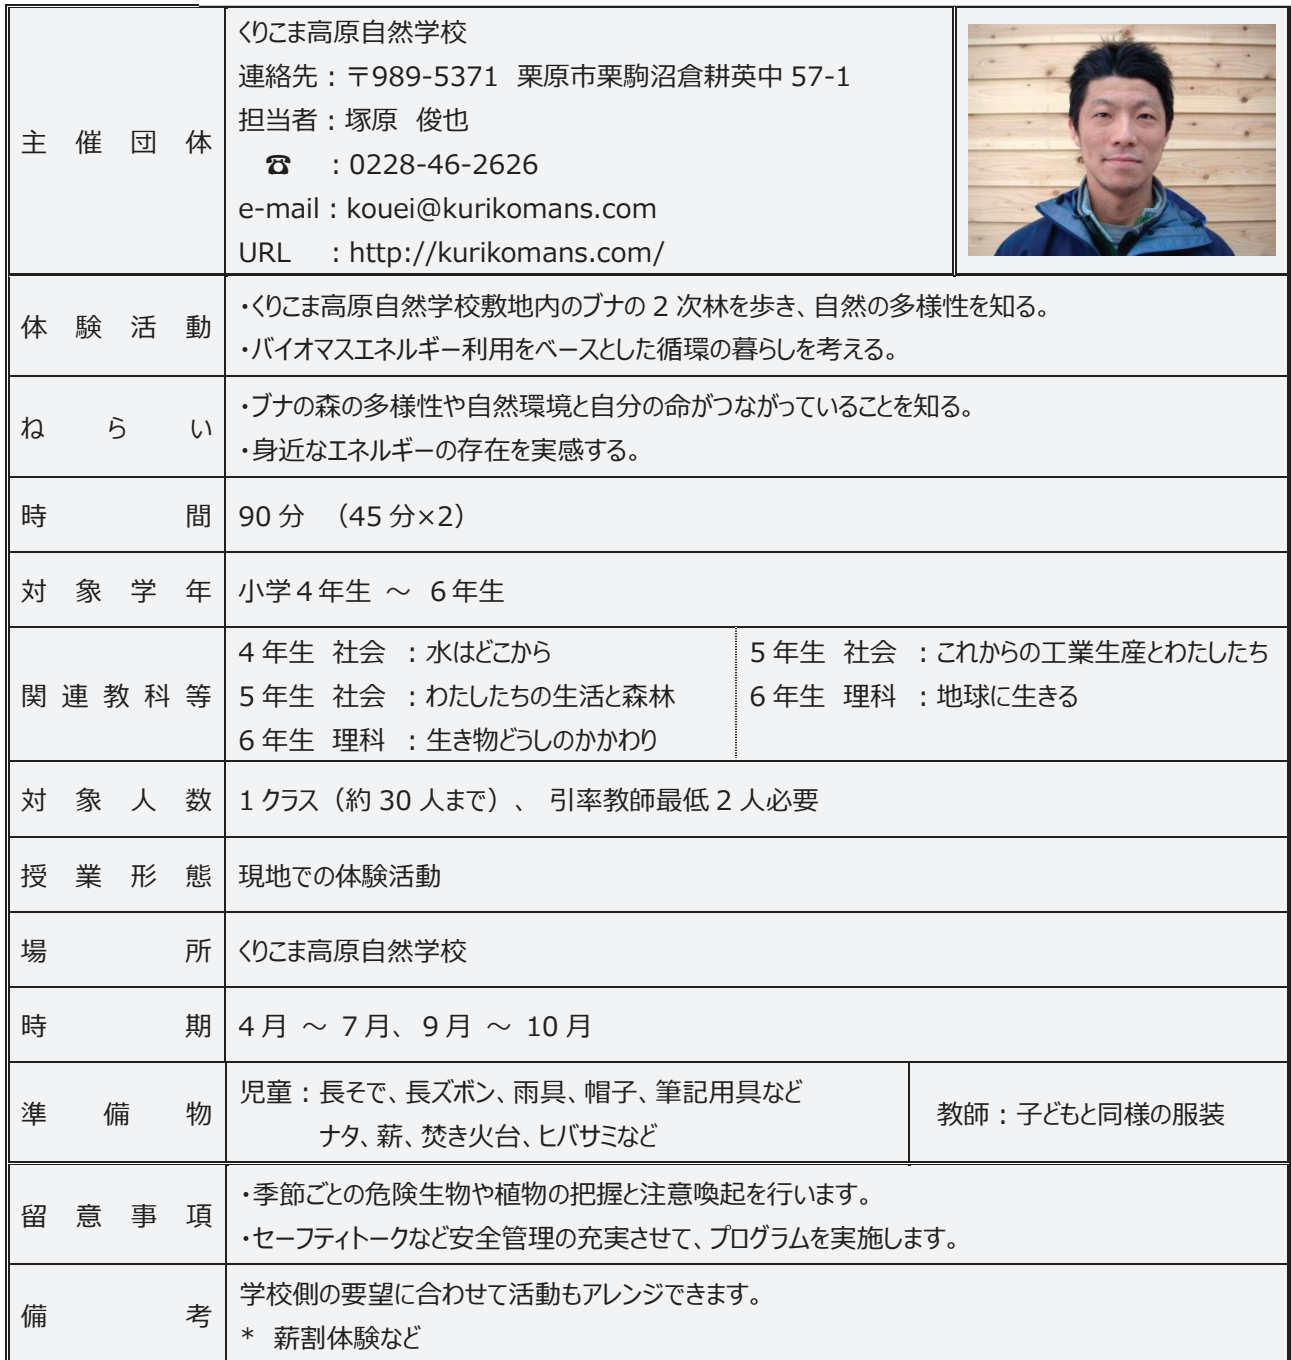 主催団体
くりこま高原自然学校
連絡先：〒989-5371 栗原市栗駒沼倉耕英中 57-1
担当者：塚原 俊也
☎ ：0228-46-2626
e-mail：kouei@kurikomans.com
URL ：http://kurikomans.com/
体験活動
・くりこま高原自然学校敷地内のブナの 2 次林を歩き、自然の多様性を知る。
・バイオマスエネルギー利用をベースとした循環の暮らしを考える。
ねらい
・ブナの森の多様性や自然環境と自分の命がつながっていることを知る。
・身近なエネルギーの存在を実感する。
時間
90 分 （45 分×2）
対象学年
小学４年生 ～ ６年生
関連教科等
４年生 社会 ：水はどこから
５年生 社会 ：わたしたちの生活と森林
６年生 理科 ：生き物どうしのかかわり
５年生 社会 ：これからの工業生産とわたしたち
６年生 理科 ：地球に生きる
対象人数
1 クラス（約 30 人まで）、 引率教師最低 2 人必要
授業形態
現地での体験活動
場所
くりこま高原自然学校
時期
４月 ～ ７月、９月 ～ 10 月
準備物
児童：長そで、長ズボン、雨具、帽子、筆記用具など
ナタ、薪、焚き火台、ヒバサミなど
教師：子どもと同様の服装
留意事項
・季節ごとの危険生物や植物の把握と注意喚起を行います。
・セーフティトークなど安全管理の充実させて、プログラムを実施します。
備考
学校側の要望に合わせて活動もアレンジできます。
* 薪割体験など